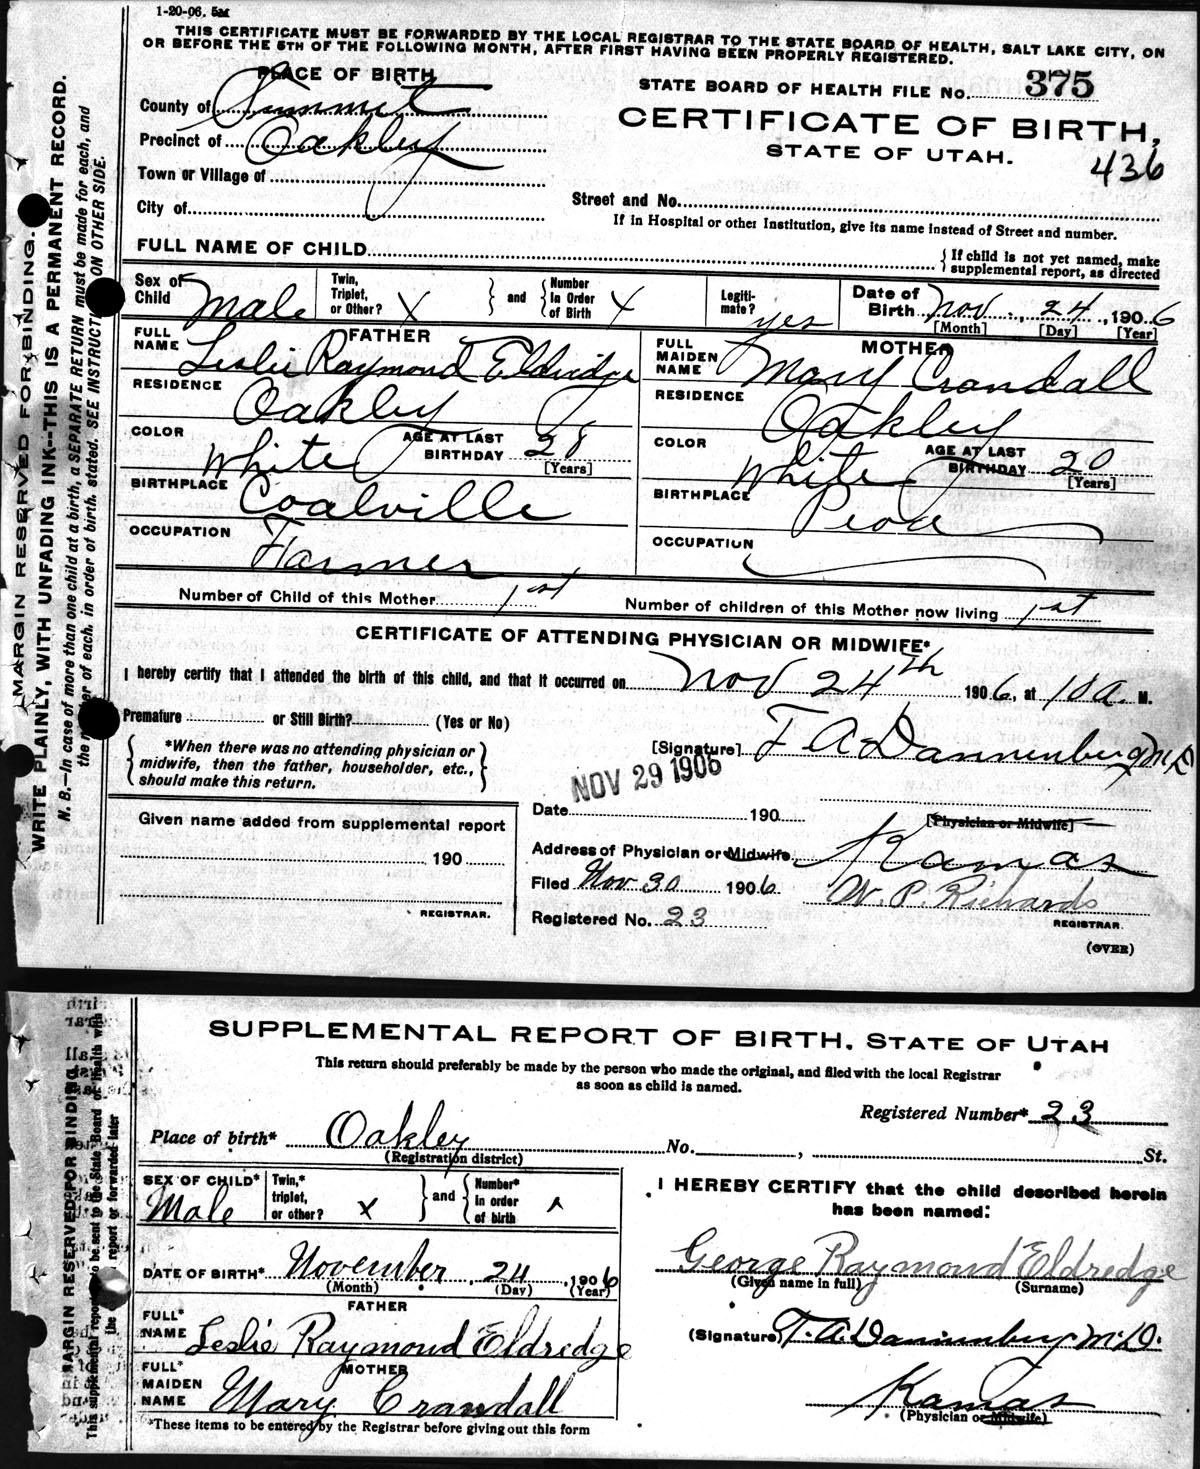 1-20-06. 5M
THIS CERTIFICATE MUST BE FORWARDED BY THE LOCAL REGISTRAR TO THE STATE BOARD OF HEALTH, SALT LAKE CITY, ON
OR BEFORE THE 5TH OF THE FOLLOWING MONTH, AFTER FIRST HAVING BEEN PROPERLY REGISTERED.
PLACE OF BIRTH
STATE BOARD OF HEALTH FILE No. 375
County of Summit
CERTIFICATE OF BIRTH,
Precinct of Oakley
STATE OF UTAH.
436
Town or Village of
City of
Street and No.
If in Hospital or other Institution, give its name instead of Street and number.
FULL NAME OF CHILD
{ If child is not yet named, make
supplemental report, as directed
Sex of Child Male
Twin, Triplet, or Other? X } and { Number in Order of Birth X
Legiti-mate? yes
Date of Birth Nov 24, 1906
[Month] [Day] [Year]
FATHER
FULL NAME Leslie Raymond Eldredge
RESIDENCE Oakley
COLOR White AGE AT LAST BIRTHDAY 28
[Years]
BIRTHPLACE Coalville
OCCUPATION Farmer
MOTHER
FULL MAIDEN NAME Mary Crandall
RESIDENCE Oakley
COLOR White AGE AT LAST BIRTHDAY 20
[Years]
BIRTHPLACE Peoa
OCCUPATION
Number of Child of this Mother 1st Number of children of this Mother now living 1st
CERTIFICATE OF ATTENDING PHYSICIAN OR MIDWIFE*
I hereby certify that I attended the birth of this child, and that it occurred on Nov 24th 1906, at 10 a M.
Premature or Still Birth? (Yes or No)
{ *When there was no attending physician or
midwife, then the father, householder, etc.,
should make this return. }
[Signature] F A Dannenberg M D
NOV 29 1906
Date 190
[Physician or Midwife]
Address of Physician or Midwife Kamas
Filed Nov 30 1906 W. P. Richards
REGISTRAR.
Registered No. 23
(OVER)
Given name added from supplemental report
190
REGISTRAR.
MARGIN RESERVED FOR BINDING.
WRITE PLAINLY, WITH UNFADING INK--THIS IS A PERMANENT RECORD.
N. B.—In case of more than one child at a birth, a SEPARATE RETURN must be made for each, and
the number of each, in order of birth, stated. SEE INSTRUCTIONS ON OTHER SIDE.
SUPPLEMENTAL REPORT OF BIRTH, STATE OF UTAH
This return should preferably be made by the person who made the original, and filed with the local Registrar
as soon as child is named.
Registered Number* 23
Place of birth* Oakley No. , St.
(Registration district)
SEX OF CHILD* Male
Twin,* triplet, or other? X } and { Number* in order of birth
DATE OF BIRTH* November 24, 1906
(Month) (Day) (Year)
FATHER
FULL* NAME Leslie Raymond Eldredge
MOTHER
FULL* MAIDEN NAME Mary Crandall
*These items to be entered by the Registrar before giving out this form
I HEREBY CERTIFY that the child described herein
has been named:
George Raymond Eldredge
(Given name in full) (Surname)
(Signature) F. A. Dannenberg M.D.
Kamas
(Physician or Midwife)
MARGIN RESERVED FOR BINDING.
This supplemental report to be sent to the State Board of Health with
the report or forwarded later